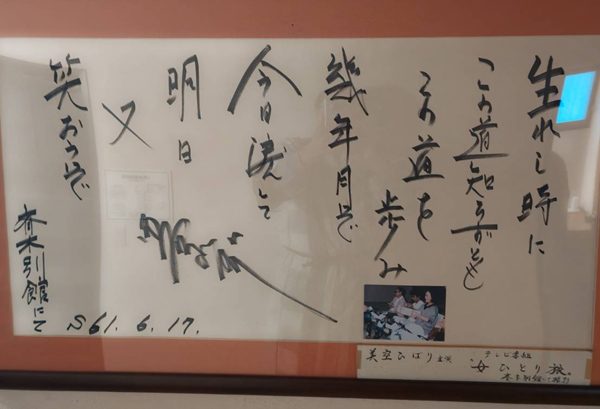 生れし時に
この道知らずとも
この道を
歩み
幾年月ぞ
今日涙して
明日
又
笑おうぞ
斉木別館にて
S61.6.17.
美空ひばり主演
テレビ番組
女ひとり旅。